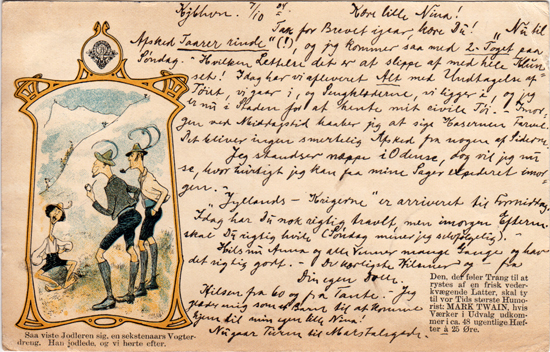 Kjbhvn. 7/10 04. Kære lille Nina!
Tak for Brevet igaar, kære Du! „Nu til
Afsked Taarer rinde" (!), og jeg kommer saa med 2-Toget paa
Søndag.- Hvilken Lettelse det er at slippe af med hele
Idag har vi afleveret Alt med Undtagelse af
Tøiet, vi gaar i, og Sengklæderne, vi ligger i, og jeg
er nu i Staden for at hente mit civile Tøi.- Imor-
gen ved Middagstid haaber jeg at sige Kasernen Farvel.
Det bliver ingen smertelig Afsked fra nogen af Siderne.
Jeg standser næppe i Odense, dog vil jeg nu
se, hvor hurtigt jeg kan faa mine Sager expederet imor-
gen.-
„Jyllands-Krigerne" er arriveret til Formiddag.
Idag har Du nok rigtig travlt, men imorgen Efterm.
skal Du rigtig hvile (Søndag mener jeg selvfølgelig).-
Hils nu Anna og alle Venner mange Gange, og hav
det sig lig godt.- De kærligste Hilsner og
Din egen
Hilsen fra og fra Tante. Jeg
glæder mig som et Barn til at komme
hjem til min egen lille Nina!
Nu gaar Turen til Marstalsgade.
Saa viste Jodleren sig, en sekstenaars Vogter-
dreng. Han jodlede, og vi hørte efter.
Den, der føler Trang til at
rystes af en frisk veder-
kvægende Latter, skal ty
til vor Tids største Humo-
rist: MARK TWAIN, hvis
Værker i Udvalg udkom-
mer i ca. 48 ugentlige Hæf-
ter à 25 Øre.